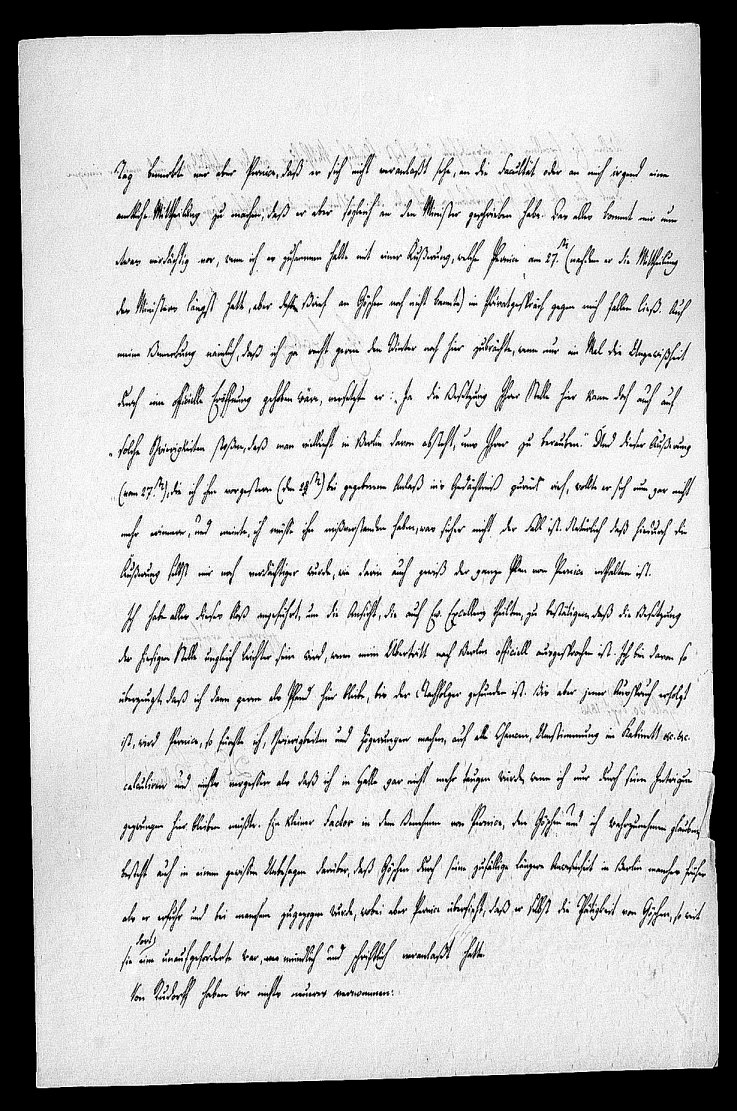 Tag bemerkte mir aber Pernice, daß er sich nicht veranlaßt sehe, an die Facultät oder an mich irgend eine
amtliche Mittheilung zu machen; daß er aber sogleich an den Minister geschrieben habe. Das alles kommt mir nun
etwas verdächtig vor, wenn ich es zusammen halte mit einer Äußerung, welche Pernice am 27.st (nachdem er die Mittheilung
des Ministers längst hatte, aber dessen Brief an Göschen noch nicht kannte) im Privatgespräch gegen mich fallen ließ. Auf
meine Bemerkung nämlich, daß ich ja recht gerne den Winter noch hier zubrächte, wenn nur ein Mal die Ungewißheit
durch eine officielle Eröffnung gehoben wäre, versetzte er: "Ja die Besetzung Ihrer Stelle hier kann doch auch auf
„solche Schwierigkeiten stoßen, daß man vielleicht in Berlin davon absteht, uns Ihrer zu berauben." Und dieser Äußerung
(vom 27.st), die ich ihm vorgestern (den 29st) bei gegebenem Anlaß ins Gedächtniß zurück rief, wollte er sich nun gar nicht
mehr erinnern, und meinte, ich müßte ihn misverstanden haben, was sicher nicht der Fall ist. Natürlich daß hiedurch die
Äußerung selbst mir noch verdächtiger wurde, wie darin auch gewiß der ganze Plan von Pernice enthalten ist.
Ich habe alles dieses bloß angeführt, um die Ansicht, die auch Ew. Excellenz theilten, zu bestätigen, daß die Besetzung
der hiesigen Stelle ungleich leichter sein wird, wenn mein Übertritt nach Berlin officiell ausgesprochen ist. Ich bin davon so
überzeugt, daß ich dann gerne als Pfand hier bleibe, bis der Nachfolger gefunden ist. Bis aber jener Ausspruch erfolgt
ist, wird Pernice, so fürchte ich, Schwierigkeiten und Zögerungen machen, auf alle Chancen, Umstimmung im Kabinett etc. etc.
calculiren und nichts vergessen als daß ich in Halle gar nicht mehr taugen würde, wenn ich nur durch seine Intrigue
gezwungen hier bleiben müßte. Ein kleiner Factor in dem Benehmen von Pernice, den Göschen und ich wahrzunehmen glauben,
besteht auch in einem gewissen Unbehagen darüber, daß Göschen durch seine zufällige längere Anwesenheit in Berlin manches früher
als er erfuhr und bei manchem zugezogen wurde, wobei aber Pernice übersieht, daß er selbst die Thätigkeit von Göschen, so weit
sie dort eine unaufgeforderte war, mündlich und schriftlich veranlaßt hatte.
Von Rudorff haben wir nichts neueres vernommen.